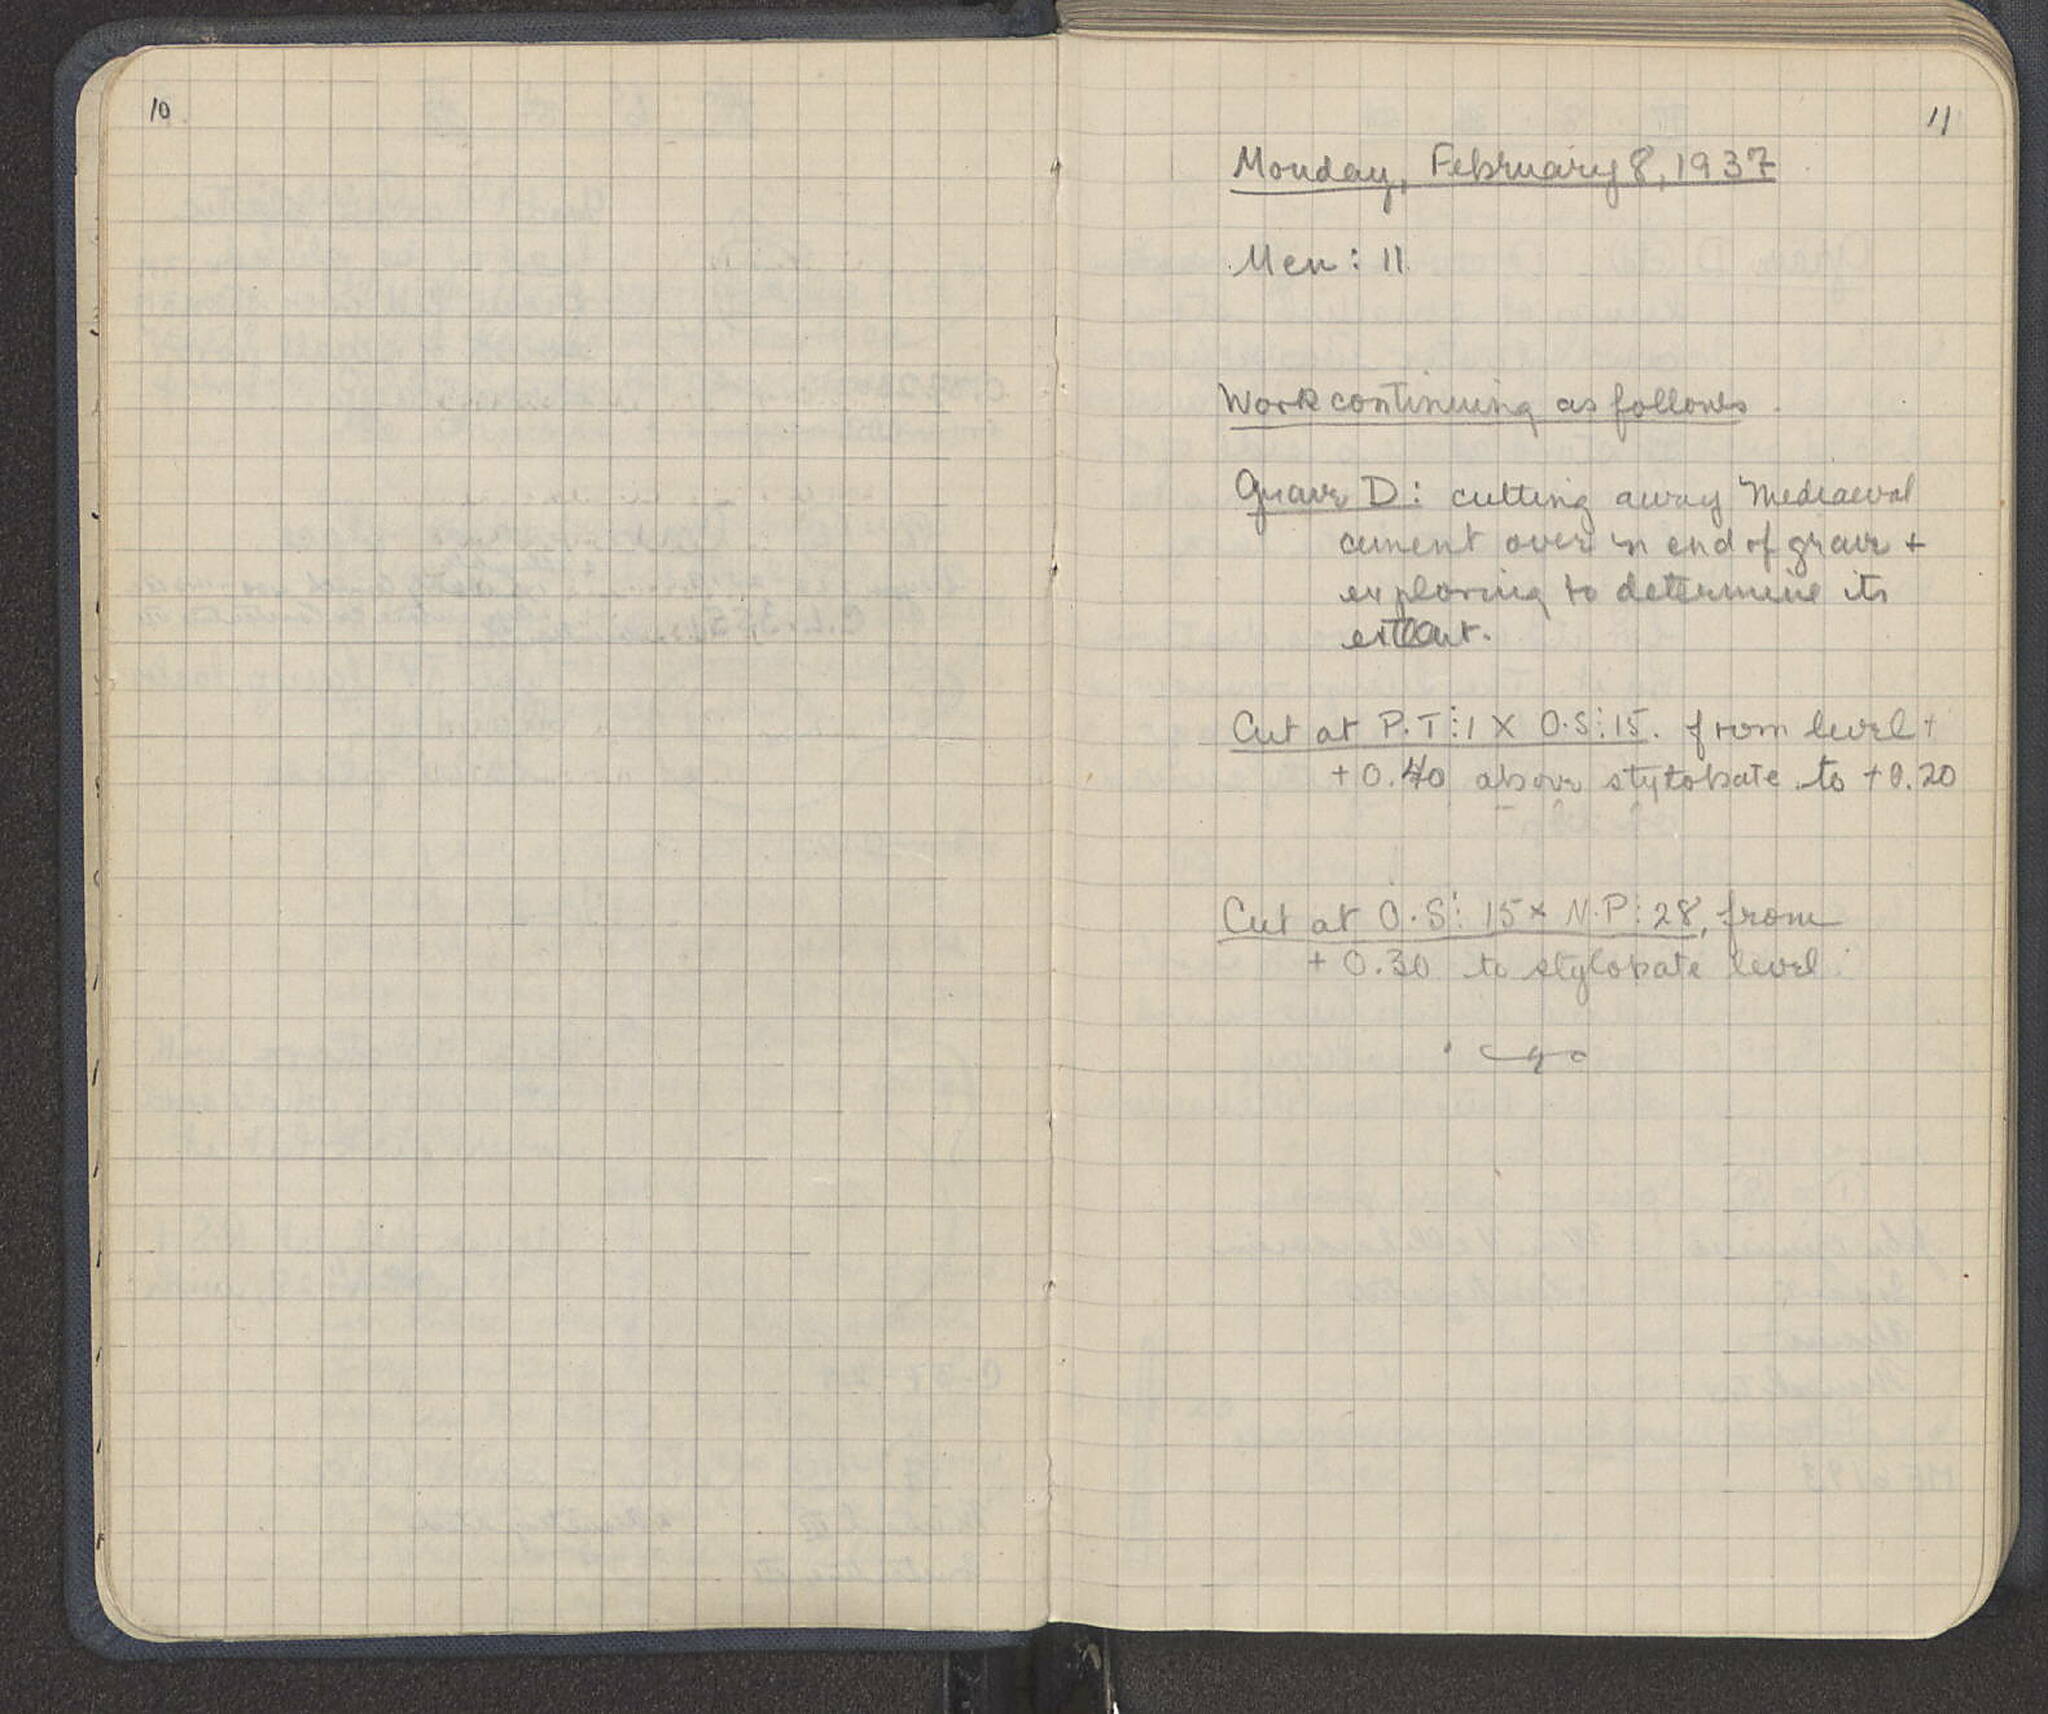 10
11
Monday, February 8, 1937
Men: 11
Work continuing as follows.
Grave D: cutting away Mediaeval
cement over end of grave +
exploring to determine its
extent.
Cut at P.T⋮1 X O.S⋮15. from level +
+0.40 above stylobate to +0.20
Cut at O.S⋮15 x N.P⋮28, from
+0.30 to stylobate level.